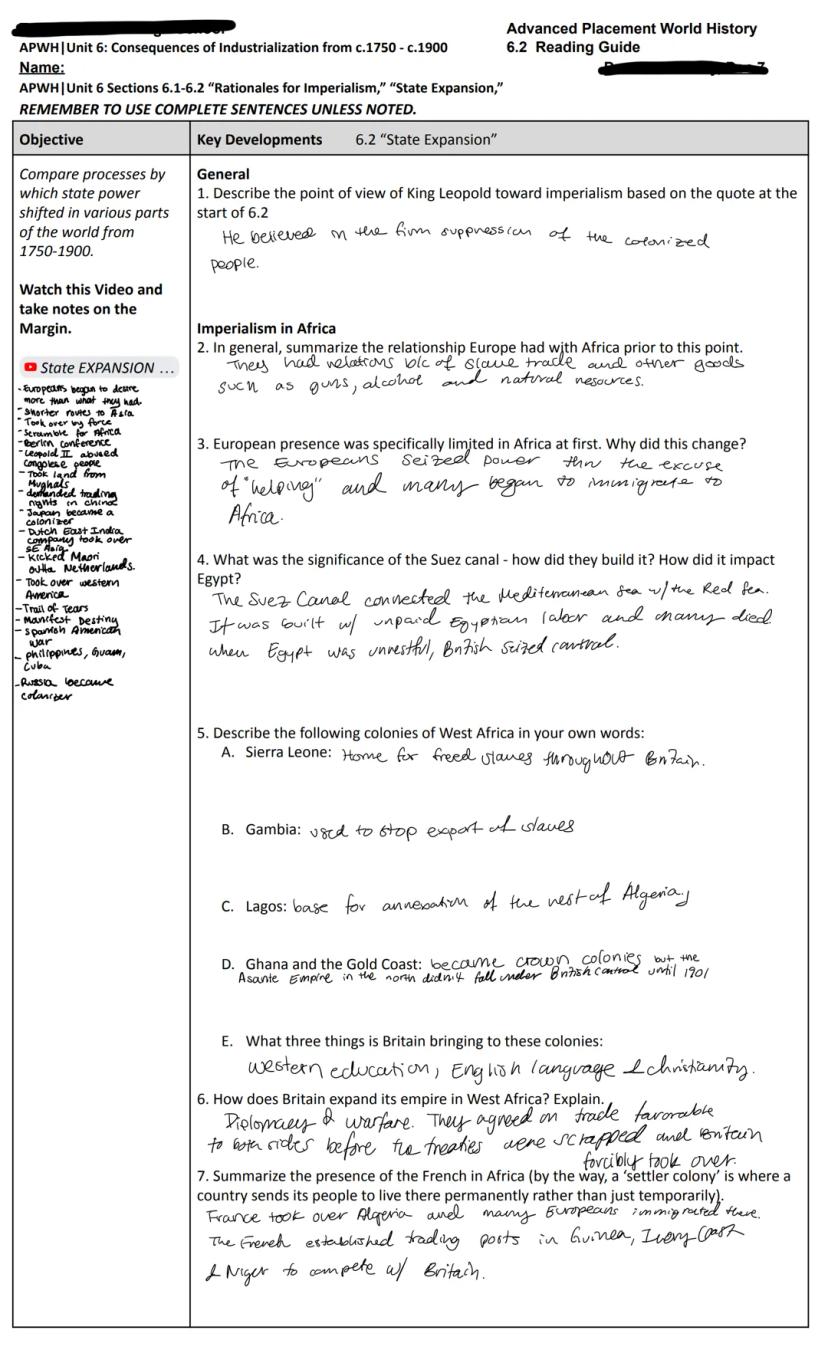 Advanced Placement World History
APWH|Unit 6: Consequences of Industrialization from c.1750 - c.1900
6.2 Reading Guide
Name:
APWH|Unit 6 Sections 6.1-6.2 “Rationales for Imperialism,” “State Expansion,”
REMEMBER TO USE COMPLETE SENTENCES UNLESS NOTED.
Objective
Compare processes by
which state power
shifted in various parts
of the world from
1750-1900.
Watch this Video and
take notes on the
Margin.
State EXPANSION ...
- Europeans began to desire
more than what they had.
- Shorter routes to Asia
- Took over by force
- Scramble for Africa
- Berlin conference
- Leopold II abused
Congolese people
- Took land from
Mughals
- demanded trading
rights in china
- Japan became a
colonizer
- Dutch East India
company took over
SE Asia
- Kicked Maori
outta Netherlands.
- Took over western
America
- Trail of Tears
- Manifest Destiny
- Spanish American
war
- philippines, Guam,
Cuba
- Russia became
colonizer
Key Developments 6.2 “State Expansion”
General
1. Describe the point of view of King Leopold toward imperialism based on the quote at the
start of 6.2
He believed in the firm suppression of the colonized
people.
Imperialism in Africa
2. In general, summarize the relationship Europe had with Africa prior to this point.
They had relations b/c of slave trade and other goods
such as guns, alcohol and natural resources.
3. European presence was specifically limited in Africa at first. Why did this change?
The Europeans seized power thru the excuse
of "helping" and many began to immigrate to
Africa.
4. What was the significance of the Suez canal - how did they build it? How did it impact
Egypt?
The Suez Canal connected the Mediterranean Sea w/ the Red Sea.
It was built w/ unpaid Egyptian labor and many died
when Egypt was unrestful, British seized control.
5. Describe the following colonies of West Africa in your own words:
A. Sierra Leone: Home for freed slaves throughout Britain.
B. Gambia: used to stop export of slaves
C. Lagos: base for annexation of the rest of Algeria
D. Ghana and the Gold Coast: became crown colonies but the
Asante Empire in the north didn't fall under British control until 1901
E. What three things is Britain bringing to these colonies:
western education, English language & christianity.
6. How does Britain expand its empire in West Africa? Explain.
Diplomacy & warfare. They agreed on trade favorable
to both sides before the treaties were scrapped and Britain
forcibly took over.
7. Summarize the presence of the French in Africa (by the way, a ‘settler colony’ is where a
country sends its people to live there permanently rather than just temporarily).
France took over Algeria and many Europeans immigrated there.
The French established trading posts in Guinea, Ivory Coast
& Niger to compete w/ Britain.